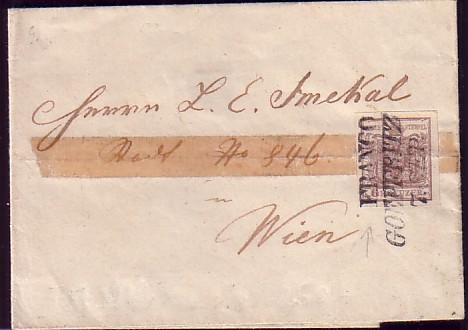 Herrn L. E. Smekal
Stadt No 846.
in
Wien
FRANCO